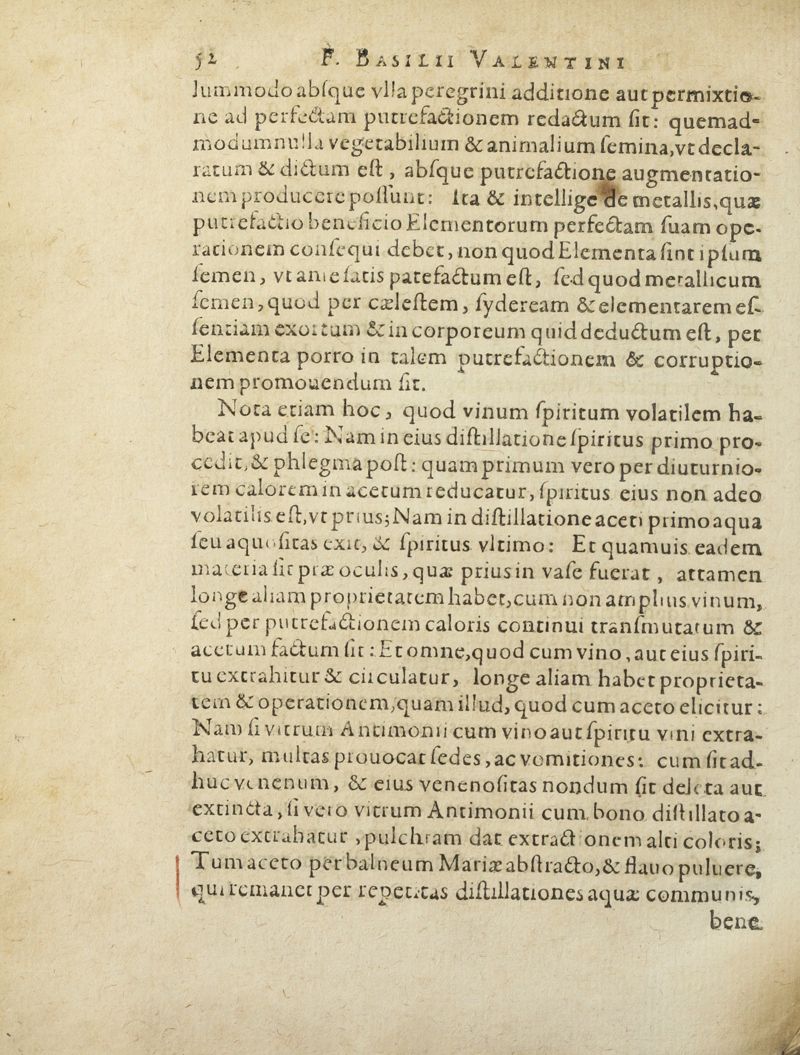 52 F. BASILII VALENTINI
lummodo abſque vlla peregrini additione aut permixtio-
ne ad perfectam putrefactionem redactum ſit: quemad-
modum nulla vegetabilium & animalium ſemina, vt decla-
ratum & dictum eſt, abſque putrefactione augmentatio-
nem producere poſſunt: Ita & intellige de metallis, quæ
putrefactio beneficio Elementorum perfectam ſuam ope-
rationem conſequi debet, non quod Elementa ſint ipſum
ſemen, vt ante ſatis patefactum eſt, ſed quod metallicum
ſemen, quod per cæleſtem, ſydeream & elementarem eſ-
ſentiam exortum & in corporeum quid deductum eſt, per
Elementa porro in talem putrefactionem & corruptio-
nem promouendum ſit.
Nota etiam hoc, quod vinum ſpiritum volatilem ha-
beat apud ſe: Nam in eius diſtillatione ſpiritus primo pro-
cedit, & phlegma poſt: quam primum vero per diuturnio-
rem calorem in acetum reducatur, ſpiritus eius non adeo
volatilis eſt, vt prius; Nam in diſtillatione aceti primo aqua
ſeu aquoſitas exit, & ſpiritus vltimo: Et quamuis eadem
materia ſit præ oculis, quæ prius in vaſe fuerat, attamen
longe aliam proprietatem habet, cum non amplius vinum,
ſed per putrefactionem caloris continui tranſmutatum &
acetum factum ſit: Et omne, quod cum vino, aut eius ſpiri-
tu extrahitur & circulatur, longe aliam habet proprieta-
tem & operationem, quam illud, quod cum aceto elicitur:
Nam ſi vitrum Antimonii cum vino aut ſpiritu vini extra-
hatur, multas prouocat ſedes, ac vomitiones: cum ſit ad-
huc venenum, & eius venenoſitas nondum ſit deleta aut
extincta, ſi vero vitrum Antimonii cum bono diſtillato a-
ceto extrahatur, pulchram dat extractionem alti coloris;
Tum aceto per balneum Mariæ abſtracto, & flauo puluere,
qui remanet per repetitas diſtillationes aquæ communis,
bene